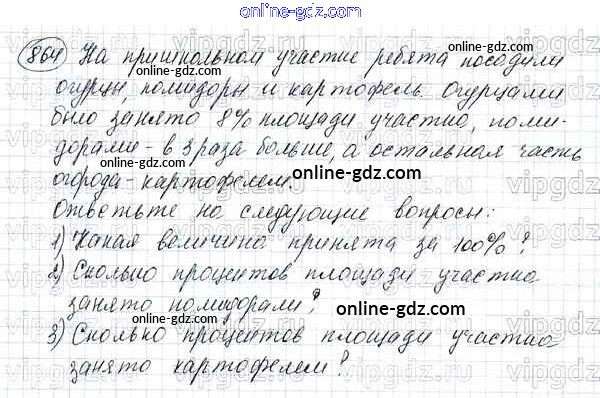 online-gdz.com
864 На пришкольном участке ребята посадили
online-gdz.com
огурцы, помидоры и картофель. Огурцами
было занято 8% площади участка, поми-
online-gdz.com
дорами - в 3 раза больше, а остальная часть
огорода - картофелем.
online-gdz.com
Ответьте на следующие вопросы:
1) Какая величина принята за 100%?
online-gdz.com
2) Сколько процентов площади участка
занято помидорами?
online-gdz.com
3) Сколько процентов площади участка
занято картофелем?
online-gdz.com